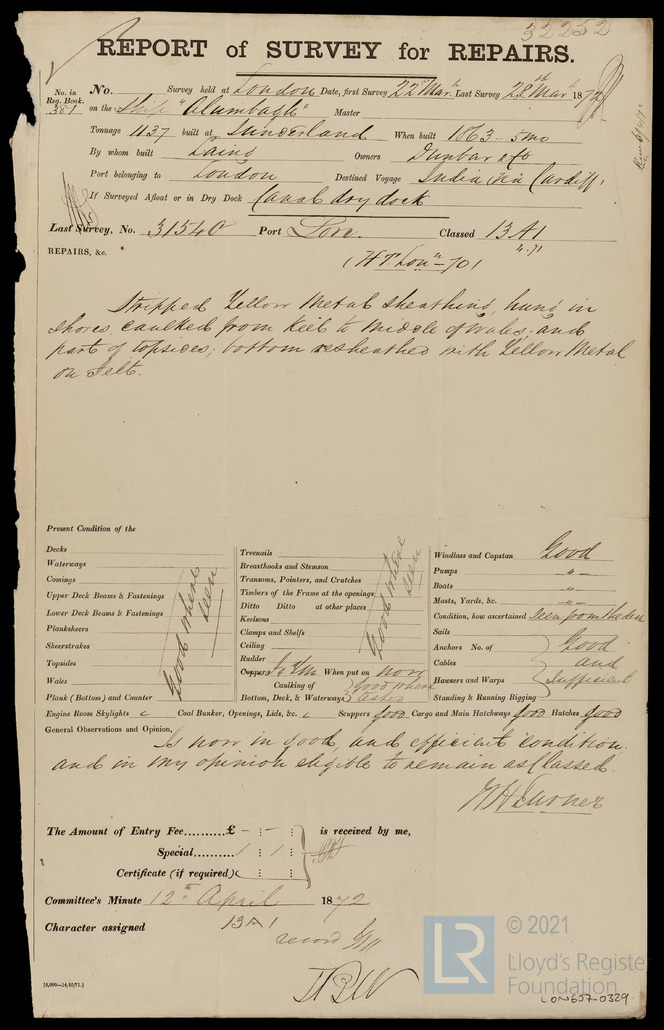 32252
REPORT of SURVEY for REPAIRS.
No. in Reg. Book. 381
No. Survey held at London Date, first Survey 22nd Mar. Last Survey 28th Mar. 1872
on the Ship "Alumbagh" Master
Tonnage 1137 built at Sunderland When built 1863 - 5mo
By whom built Laing Owners Dunbar & Co
Port belonging to London Destined Voyage India via Cardiff
If Surveyed Afloat or in Dry Dock Canal dry dock
Last Survey, No. 31540 Port Lon. Classed 13 A1
4.71
REPAIRS, &c.
(HT. Lon - 70)
Stripped Yellow Metal Sheathing, hung in
shores, caulked from Keel to middle of wales, and
part of topsides; bottom resheathed with Yellow Metal
on Felt.
Present Condition of the
Decks
Waterways
Comings
Upper Deck Beams & Fastenings
Lower Deck Beams & Fastenings
Planksheers
Sheerstrakes
Topsides
Wales
Plank (Bottom) and Counter
Good where seen
Treenails
Breasthooks and Stemson
Transoms, Pointers, and Crutches
Timbers of the Frame at the openings
Ditto Ditto at other places
Keelsons
Clamps and Shelfs
Ceiling
Rudder
Good where seen
Copper, Y.M. When put on now
Caulking of Bottom, Deck, & Waterways Good where
Windlass and Capstan Good
Pumps "
Boats "
Masts, Yards, &c. "
Condition, how ascertained Seen from the deck
Sails
Anchors No. of
Cables
Hawsers and Warps
Standing & Running Rigging
Good and Sufficient
Engine Room Skylights Coal Bunker, Openings, Lids, &c. Scuppers good Cargo and Main Hatchways good Hatches good
General Observations and Opinion, Is now in good, and efficient condition,
and in my opinion eligible to remain as Classed.
The Amount of Entry Fee.......... £ - : - : is received by me,
Special.......... 1 : 1 :
Certificate (if required)
Committee's Minute 12th April 1872
Character assigned 13 A1
record
[6,000—14/10/71.]
LR
© 2021
Lloyd's Register
Foundation
LON657-0329